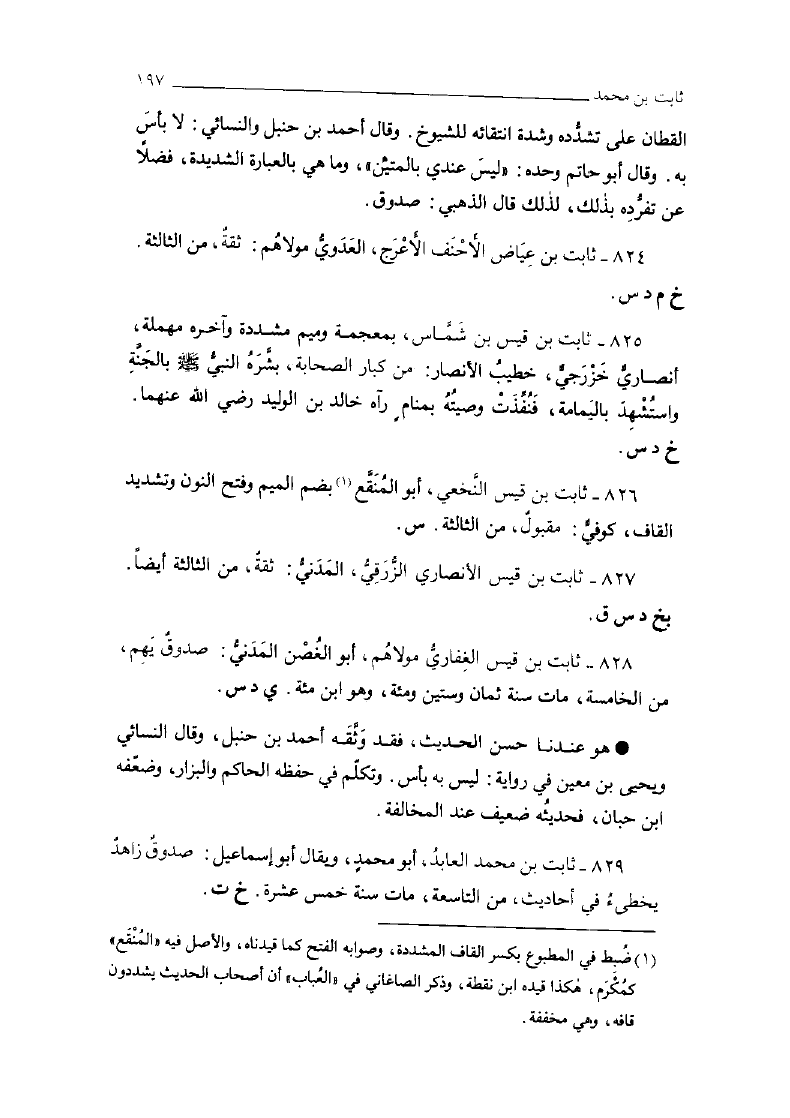 ثابت بن محمد ١٩٧
القطان على تشدُّده وشدة انتقائه للشيوخ. وقال أحمد بن حنبل والنسائي: لا بأسَ
به. وقال أبو حاتم وحده: «ليسَ عندي بالمتيْن»، وما هي بالعبارة الشديدة، فضلًا
عن تفرُّدِه بذٰلك، لذٰلك قال الذهبي: صدوق.
٨٢٤ ـ ثابت بن عِيَاض الأَحْنَف الأَعْرَج، العَدَويُّ مولاهُم: ثقةٌ، من الثالثة.
خ م د س.
٨٢٥ ـ ثابت بن قيس بن شَمَّاس، بمعجمة وميم مشددة وآخره مهملة،
أنصاريٌّ خَزْرَجيٌّ، خطيبُ الأنصار: من كبار الصحابة، بشَّرَهُ النبيُّ ﷺ بالجَنَّةِ
واستُشْهِدَ باليَمامة، فَنُفِّذَتْ وصيتُهُ بمنامٍ رآه خالد بن الوليد رضي الله عنهما.
خ د س.
٨٢٦ ـ ثابت بن قيس النَّخعي، أبو المُنَقَّع(١) بضم الميم وفتح النون وتشديد
القاف، كوفيٌّ: مقبولٌ، من الثالثة. س.
٨٢٧ ـ ثابت بن قيس الأنصاري الزُّرَقِيُّ، المَدَنيُّ: ثقةٌ، من الثالثة أيضاً.
بخ د س ق.
٨٢٨ ـ ثابت بن قيس الغِفاريُّ مولاهُم، أبو الغُصْن المَدَنيُّ: صدوقٌ يَهِم،
من الخامسة، مات سنة ثمان وستين ومئة، وهو ابن مئة. ي د س.
● هو عندنا حسن الحديث، فقد وَثَّقَه أحمد بن حنبل، وقال النسائي
ويحيى بن معين في رواية: ليس به بأس. وتكلّم في حفظه الحاكم والبزار، وضعّفه
ابن حبان، فحديثُه ضعيف عند المخالفة.
٨٢٩ ـ ثابت بن محمد العابدُ، أبو محمدٍ، ويقال أبو إسماعيل: صدوقٌ زاهدٌ
يخطىءُ في أحاديث، من التاسعة، مات سنة خمس عشرة. خ ت.
(١) ضُبط في المطبوع بكسر القاف المشددة، وصوابه الفتح كما قيدناه، والأصل فيه «المُنْقَع»
كمُكْرَم، هٰكذا قيده ابن نقطة، وذكر الصاغاني في «العُباب» أن أصحاب الحديث يشددون
قافه، وهي مخففة.